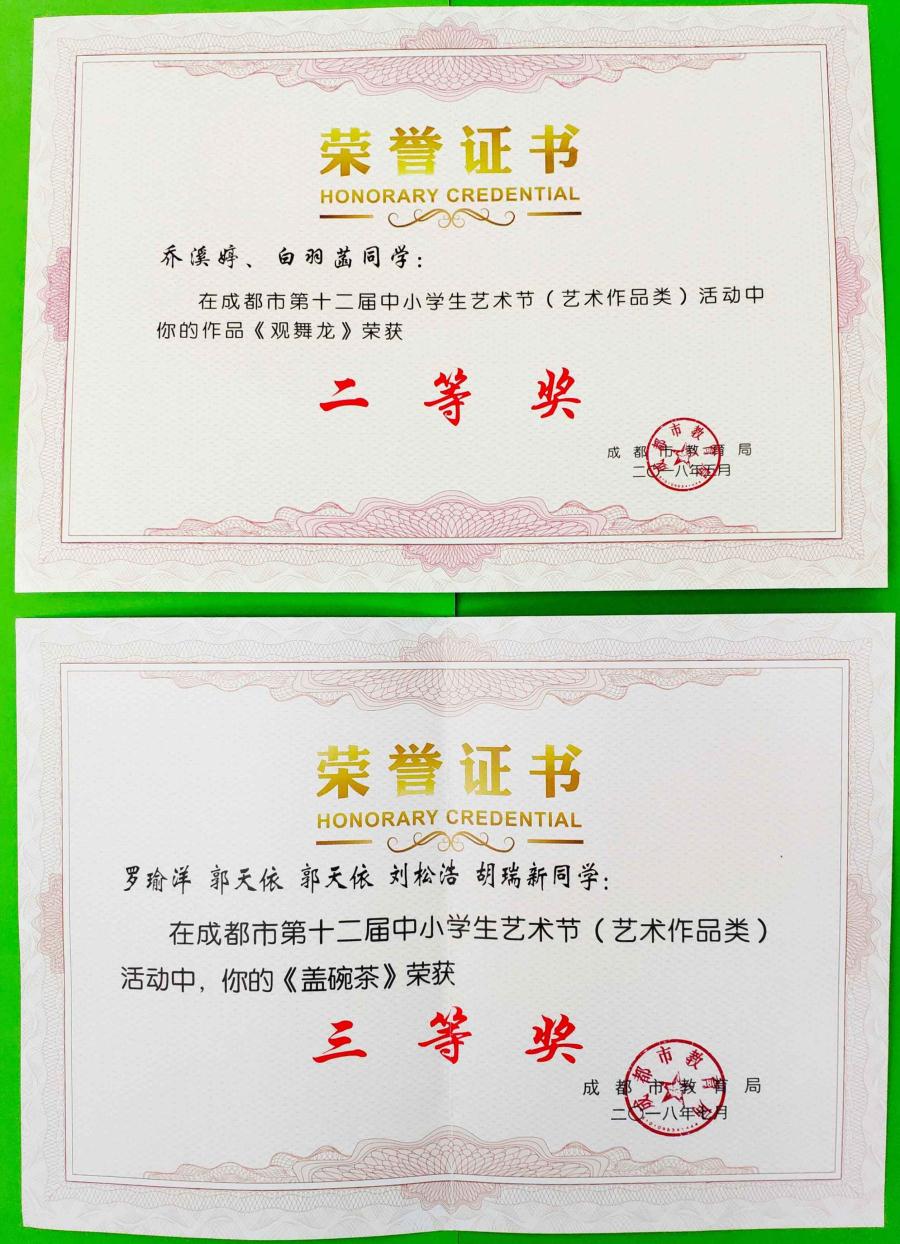 荣誉证书
HONORARY CREDENTIAL
乔溪婷、白羽菡同学：
在成都市第十二届中小学生艺术节（艺术作品类）活动中
你的作品《观舞龙》荣获
二等奖
成都市教育局
二〇一八年五月
荣誉证书
HONORARY CREDENTIAL
罗瑜洋 郭天依 郭天依 刘松浩 胡瑞新同学：
在成都市第十二届中小学生艺术节（艺术作品类）
活动中，你的《盖碗茶》荣获
三等奖
成都市教育局
二〇一八年七月